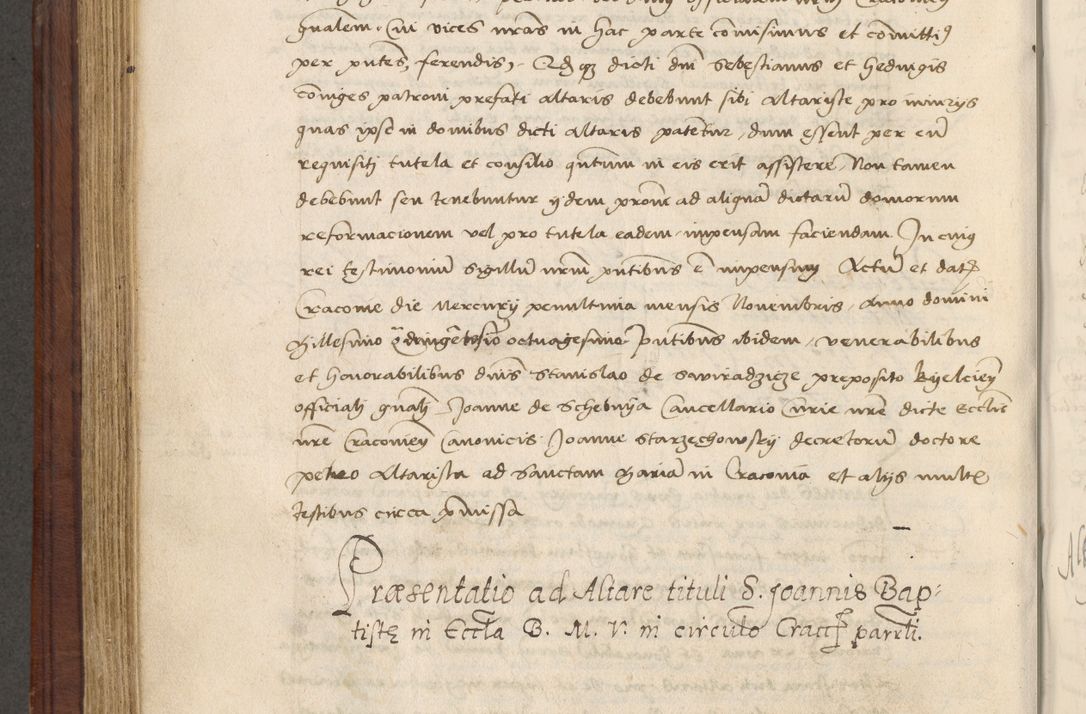 gnalem. Cui vices nr̃as in hac parte com̃isimus et com̃ittiꝯ
per pñtes, ferendis, Q̃ꝫ dicti dñi Sebestianus et Heduigis
coniuges patroni prefati altaris debebunt sibi Altariste pro iniurijs
quas ipse in domibus dicti altaris patetur, dum essent per eũ
requisiti tutela et consilio qñtum in eis erit assistere, Non tamen
debebunt seu tenebuntur ijdem pron̄e ad aliquã dictarũ domorum
reformacionem vel pro tutela eadem impensam faciendam In cuiꝯ
rei testimoniũ Sigillũ nrũm pñtibus ẽ impensum Actũ et datꝫ
Cracouie die Mercurij penultima mensis Nouembris, Anno domini
Millesimo q̃dringẽtesio octuagesimo Pñtibus ibidem, venerabilibus
et honorabilibus dñis Stanislao de Swiradzicze preposito Kyelcieñ
officiali gnãli Joanne de Schebnya Cancellario Curie nrẽ dicte Eccliẽ
nrẽ Cracouieñ Canonicis Joanne Starzechowsky decretorũ doctore
petro Altarista ad Sanctam Mariã in Cracouia et alijs multꝭ
testibus circa p̃missa
Præsentatio ad Altare tituli S. Joannis Bap-
tistę in Eccl̃a B. M. V. in circulo Cracc. parrl̃i.